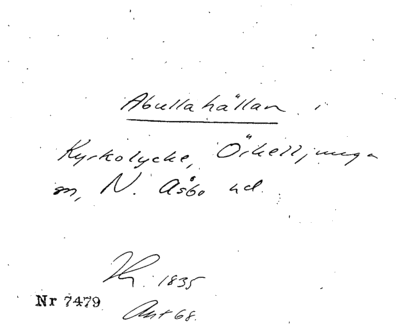 Abullahällan i
Kyrkolycke, Örkelljunga
sn, N. Åsbo hd
1835
Nr 7479
Ant 68.